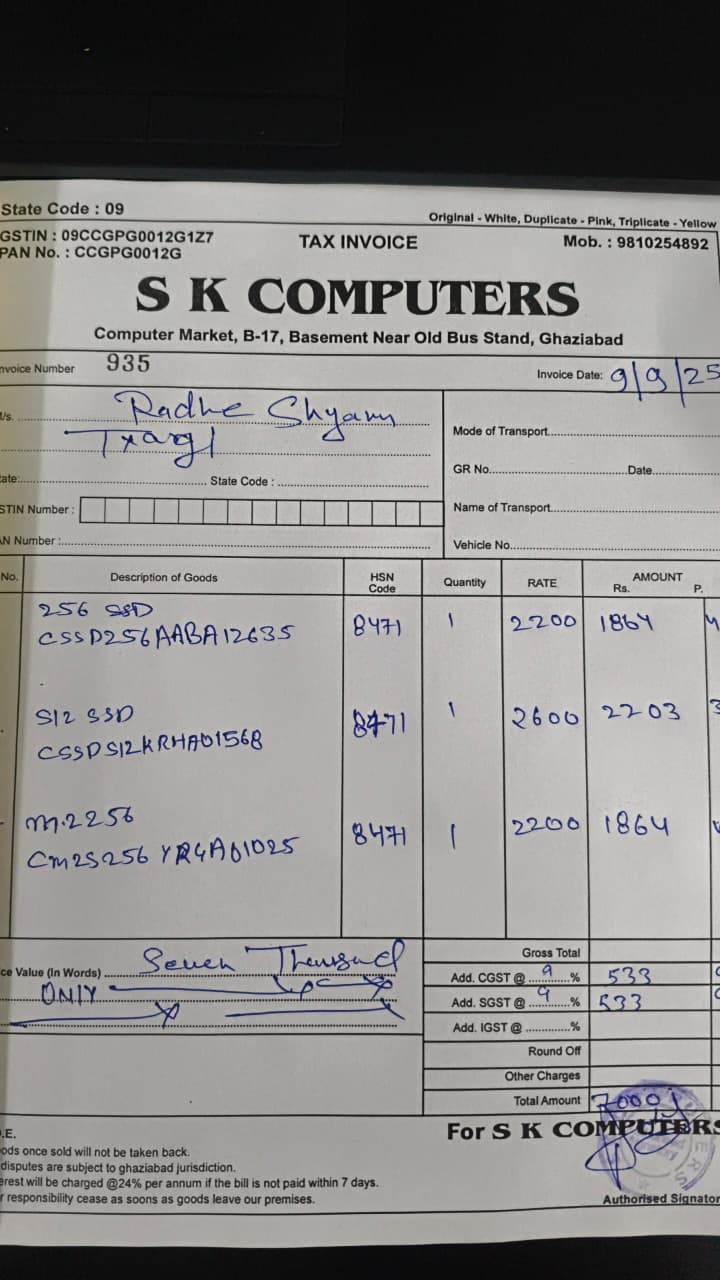 State Code : 09
Original - White, Duplicate - Pink, Triplicate - Yellow
GSTIN : 09CCGPG0012G1Z7
TAX INVOICE
Mob. : 9810254892
PAN No. : CCGPG0012G
S K COMPUTERS
Computer Market, B-17, Basement Near Old Bus Stand, Ghaziabad
nvoice Number 935
Invoice Date: 9/9/25
/s. Radhe Shyam
Mode of Transport
GR No. Date
ate: State Code :
STIN Number :
Name of Transport
AN Number :
Vehicle No.
No. Description of Goods HSN Code Quantity RATE AMOUNT Rs. P.
256 SSD 8471 1 2200 1864
CSSD256AABA12635
512 SSD 8471 1 2600 2203
CSSDS12KRHA01568
M.2256 8471 1 2200 1864
CM2S256 YRGA01025
Gross Total
ce Value (In Words) Seven Thousand
Add. CGST @ 9 % 533
ONLY
Add. SGST @ 9 % 533
Add. IGST @ %
Round Off
Other Charges
Total Amount 7000/
.E.
For S K COMPUTERS
ods once sold will not be taken back.
disputes are subject to ghaziabad jurisdiction.
erest will be charged @24% per annum if the bill is not paid within 7 days.
r responsibility cease as soons as goods leave our premises.
Authorised Signator